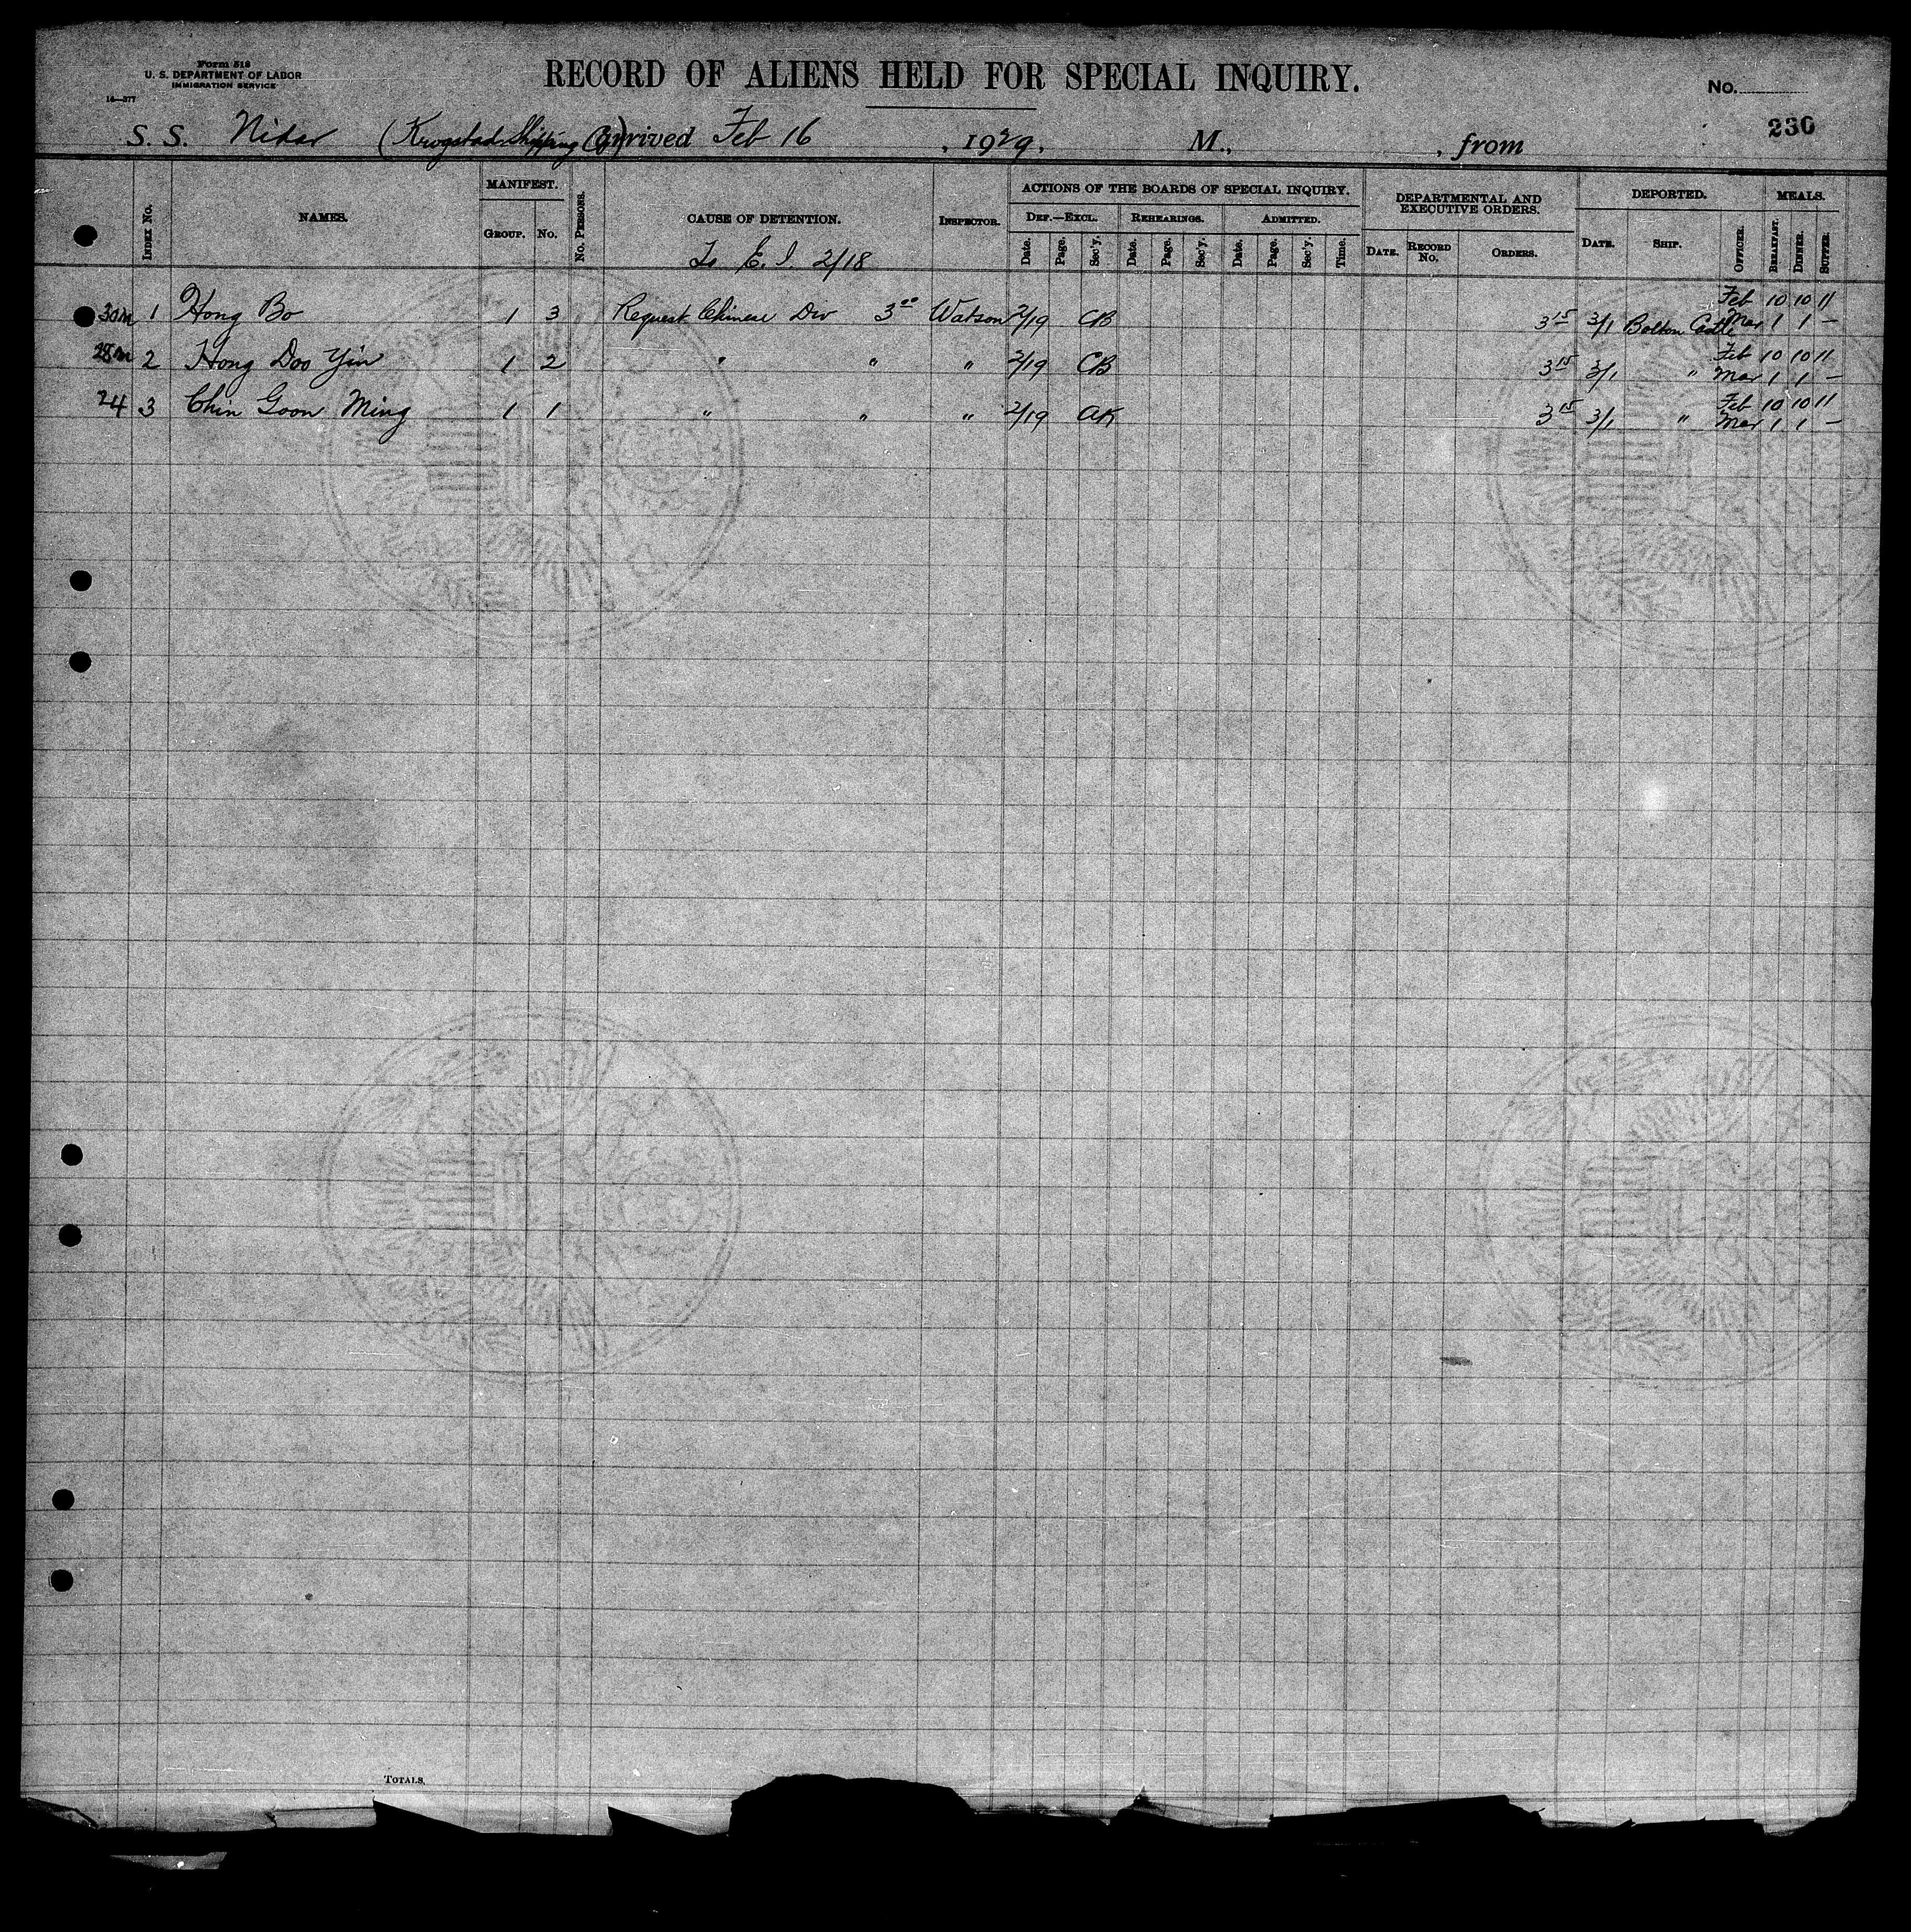 Form 518
U. S. DEPARTMENT OF LABOR
IMMIGRATION SERVICE
16—377
RECORD OF ALIENS HELD FOR SPECIAL INQUIRY.
No.
230
S. S. Nidar (Krogstad Shipping Co) arrived Feb 16, 1929, M., from
INDEX No.
NAMES.
MANIFEST.
GROUP. No.
No. PERSONS.
CAUSE OF DETENTION.
To E. I. 2/18
INSPECTOR.
ACTIONS OF THE BOARDS OF SPECIAL INQUIRY.
DEF.—EXCL. REHEARINGS. ADMITTED.
Date. Page. Sec'y. Date. Page. Sec'y. Date. Page. Sec'y. Time.
DEPARTMENTAL AND EXECUTIVE ORDERS.
DATE. RECORD No. ORDERS.
DEPORTED.
DATE. SHIP. OFFICER.
MEALS.
BREAKFAST. DINNER. SUPPER.
Feb 10 10 11
30m 1 Hong Bo 1 3 Request Chinese Div 3 00 Watson 2/19 CB 3 15 3/1 Bolton Castle Mar 1 1 —
Feb 10 10 11
28m 2 Hong Doo Yin 1 2 " " " 2/19 CB 3 15 3/1 " Mar 1 1 —
Feb 10 10 11
24 3 Chin Goon Ming 1 1 " " " 2/19 AK 3 15 3/1 " Mar 1 1 —
TOTALS.